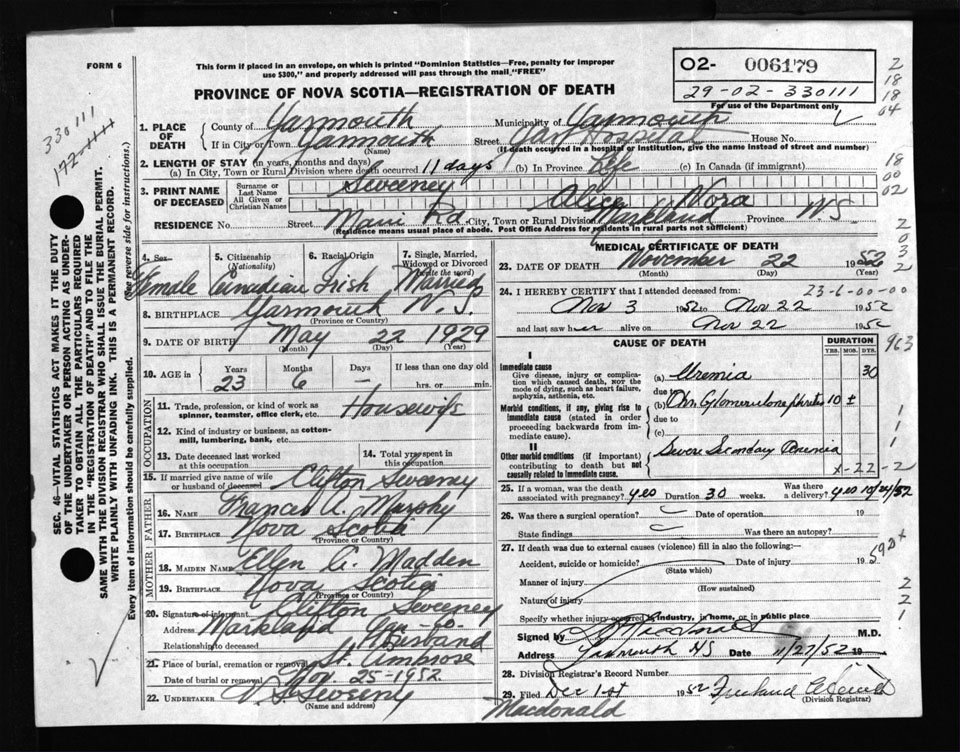 FORM 6
This form if placed in an envelope, on which is printed "Dominion Statistics—Free, penalty for improper
use $300," and properly addressed will pass through the mail "FREE"
PROVINCE OF NOVA SCOTIA—REGISTRATION OF DEATH
02- 006179
29-02-330111
For use of the Department only
330111
SEC. 46—VITAL STATISTICS ACT MAKES IT THE DUTY
OF THE UNDERTAKER OR PERSON ACTING AS UNDER-
TAKER TO OBTAIN ALL THE PARTICULARS REQUIRED
IN THE "REGISTRATION OF DEATH" AND TO FILE THE
SAME WITH THE DIVISION REGISTRAR WHO SHALL ISSUE THE BURIAL PERMIT.
WRITE PLAINLY WITH UNFADING INK. THIS IS A PERMANENT RECORD.
Every item of information should be carefully supplied. (See reverse side for instructions.)
1. PLACE OF DEATH County of Yarmouth Municipality of Yarmouth
If in City or Town Yarmouth (Name) Street Yar Hospital House No.
(If death occurred in a hospital or institution, give name instead of street and number)
2. LENGTH OF STAY (in years, months and days)
(a) In City, Town or Rural Division where death occurred 11 days (b) In Province Life (c) In Canada (if immigrant)
3. PRINT NAME OF DECEASED Surname or Last Name Sweeney
All Given or Christian Names Alice Nora
RESIDENCE No. Street Main Rd. City, Town or Rural Division Markland Province N.S.
(Residence means usual place of abode. Post Office Address for residents in rural parts not sufficient)
4. Sex Female
5. Citizenship (Nationality) Canadian
6. Racial Origin Irish
7. Single, Married, Widowed or Divorced (write the word) Married
8. BIRTHPLACE Yarmouth N.S.
(Province or Country)
9. DATE OF BIRTH May 22 1929
(Month) (Day) (Year)
10. AGE in Years 23 Months 6 Days — If less than one day old hrs. or min.
OCCUPATION
11. Trade, profession or kind of work as spinner, teamster, office clerk, etc. Housewife
12. Kind of industry or business, as cotton-mill, lumbering, bank, etc.
13. Date deceased last worked at this occupation
14. Total yrs. spent in this occupation
15. If married give name of wife or husband of deceased Clifton Sweeney
FATHER
16. Name Francis A. Murphy
17. Birthplace Nova Scotia
(Province or Country)
MOTHER
18. MAIDEN NAME Ellen G. Madden
19. BIRTHPLACE Nova Scotia
(Province or Country)
20. Signature of informant Clifton Sweeney
Address Markland Yar. Co.
Relationship to deceased Husband
21. Place of burial, cremation or removal St. Ambrose
Date of burial or removal Nov. 25-1952
22. UNDERTAKER V. S. Sweeny
(Name and address)
MEDICAL CERTIFICATE OF DEATH
23. DATE OF DEATH November 22 1952
(Month) (Day) (Year)
24. I HEREBY CERTIFY that I attended deceased from: 23-6-00-00
Nov 3 1952 to Nov 22 1952
and last saw her alive on Nov 22 1952
CAUSE OF DEATH
DURATION
YRS. MOS. DYS.
I
Immediate cause
Give disease, injury or complication which caused death, NOT the mode of dying, such as heart failure, asphyxia, asthenia, etc.
(a) Uremia 30
due to
Morbid conditions, if any, giving rise to immediate cause (stated in order proceeding backwards from immediate cause).
(b) Chr. Glomerulonephritis 10 ±
due to
(c)
II
Other morbid conditions (if important) contributing to death but not causally related to immediate cause.
Severe Secondary Anemia
25. If a woman, was the death associated with pregnancy? yes Duration 30 weeks. Was there a delivery? yes 10/24/52
26. Was there a surgical operation? Date of operation 19
State findings Was there an autopsy?
27. If death was due to external causes (violence) fill in also the following:—
Accident, suicide or homicide? Date of injury 19
(State which)
Manner of injury
(How sustained)
Nature of injury
Specify whether injury occurred in industry, in home, or in public place
Signed by M.D.
Address Yarmouth NS Date 11/27/52 19
28. Division Registrar's Record Number
29. Filed Dec 1st 1952
(Division Registrar)
Macdonald